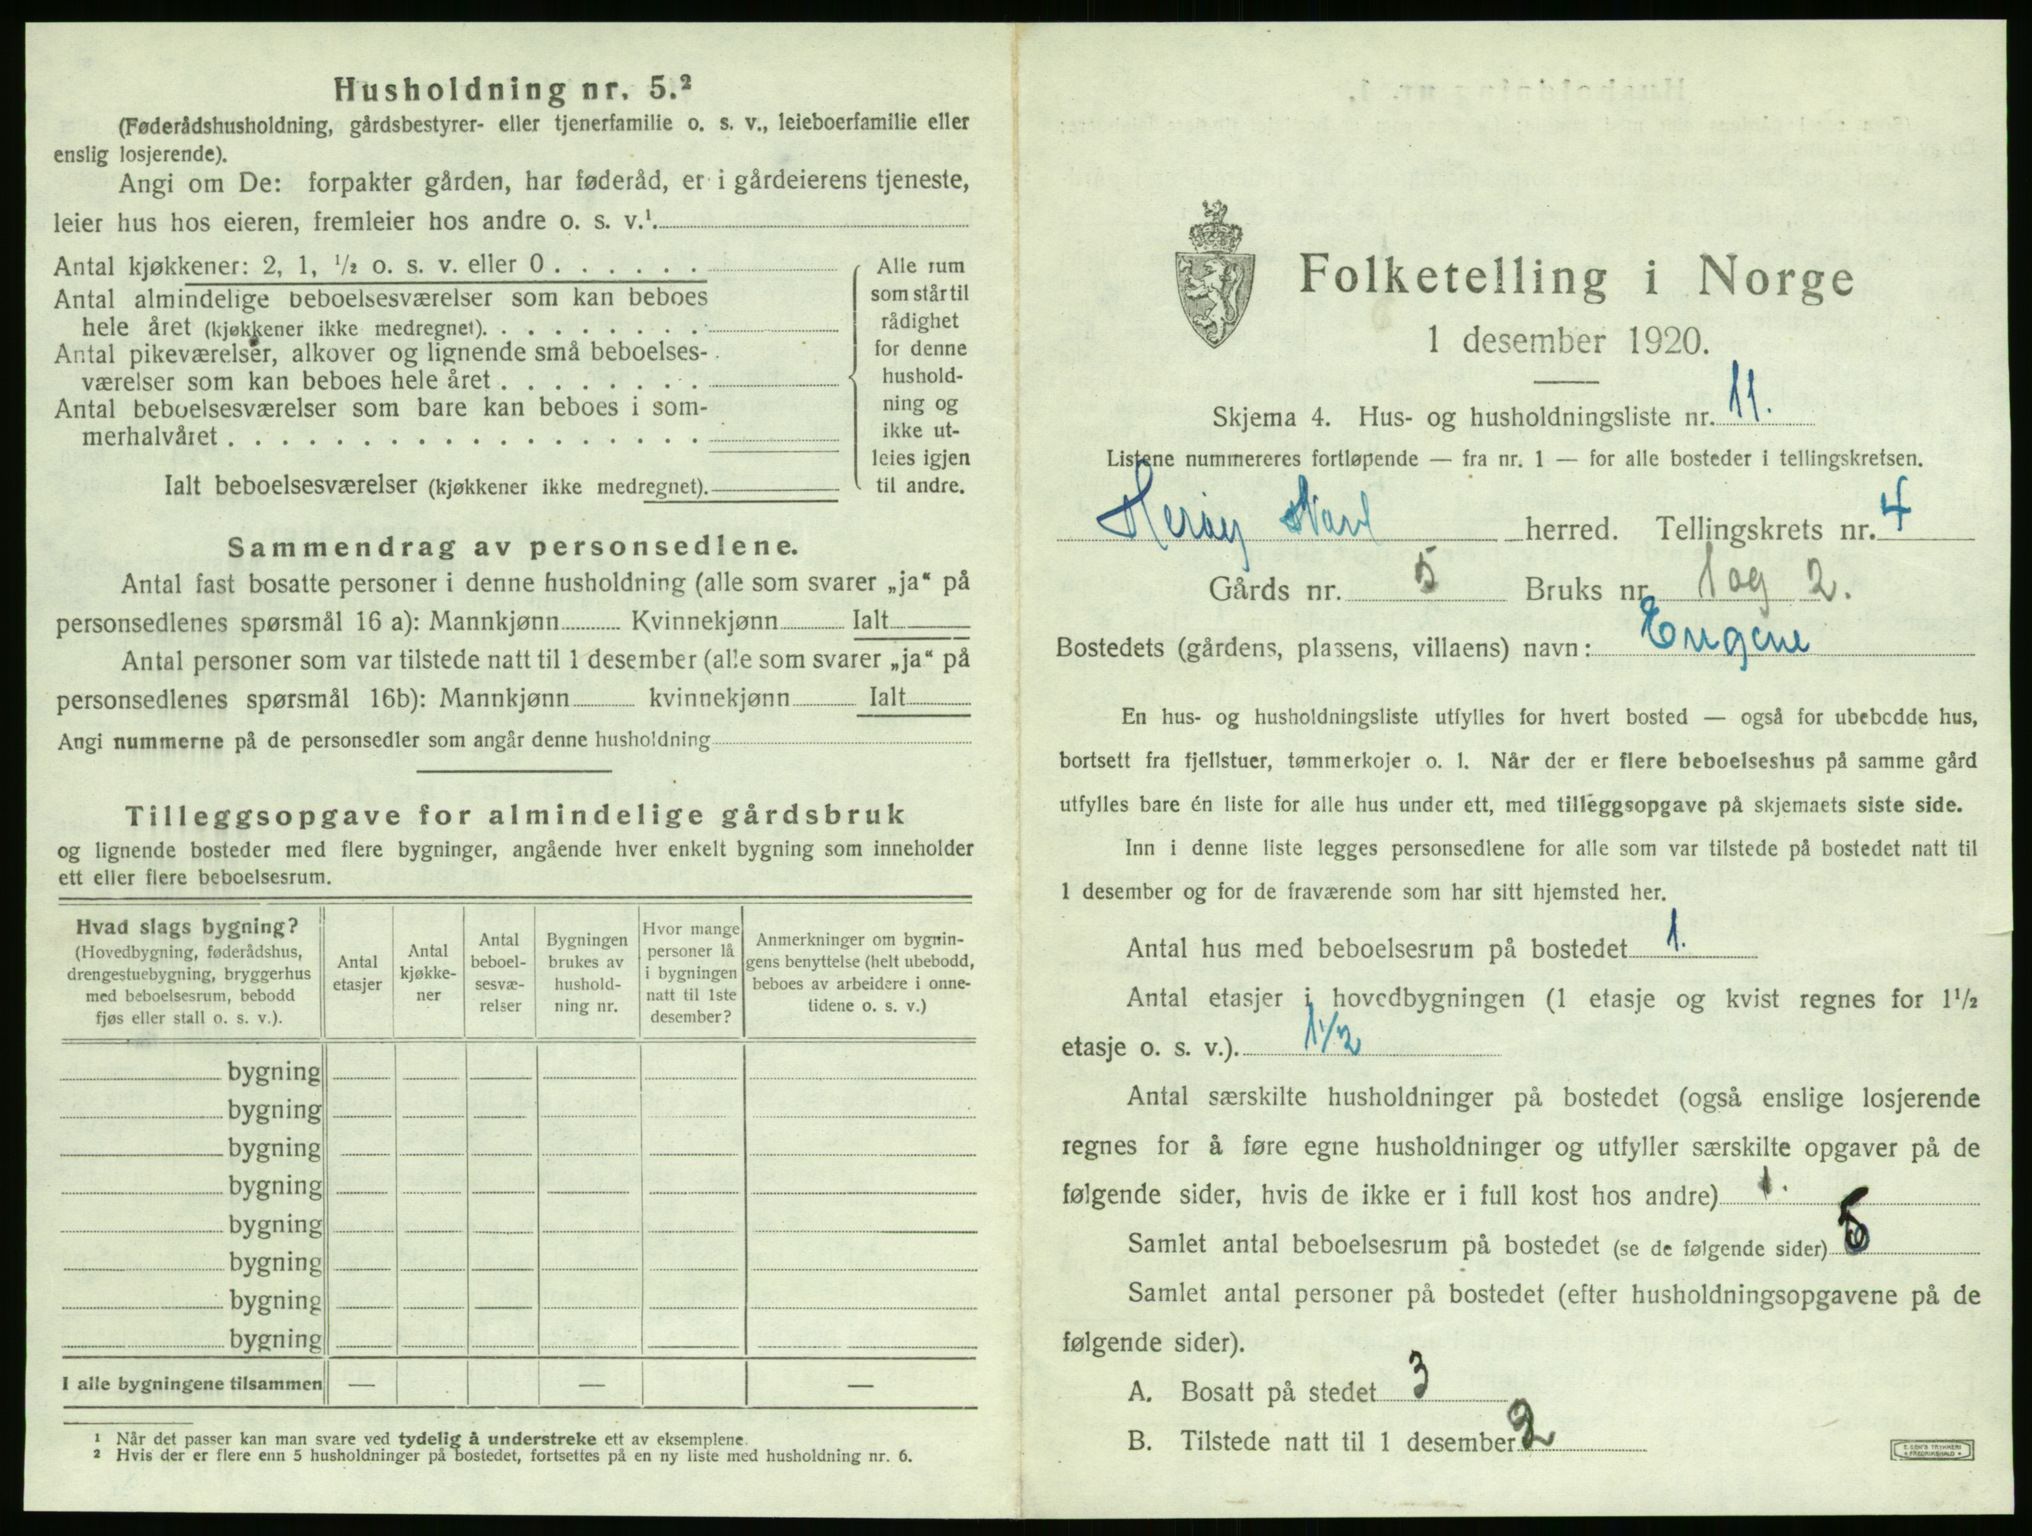 Husholdning nr. 5.²
(Føderådshusholdning, gårdsbestyrer- eller tjenerfamilie o. s. v., leieboerfamilie eller
enslig losjerende).
Angi om De: forpakter gården, har føderåd, er i gårdeierens tjeneste,
leier hus hos eieren, fremleier hos andre o. s. v.¹.
Antal kjøkkener: 2, 1, ½ o. s. v. eller 0
Antal almindelige beboelsesværelser som kan beboes
hele året (kjøkkener ikke medregnet).
Antal pikeværelser, alkover og lignende små beboelses-
værelser som kan beboes hele året
Antal beboelsesværelser som bare kan beboes i som-
merhalvåret
Ialt beboelsesværelser (kjøkkener ikke medregnet).
Alle rum
som står til
rådighet
for denne
hushold-
ning og
ikke ut-
leies igjen
til andre.
Sammendrag av personsedlene.
Antal fast bosatte personer i denne husholdning (alle som svarer „ja“ på
personsedlenes spørsmål 16 a): Mannkjønn Kvinnekjønn Ialt
Antal personer som var tilstede natt til 1 desember (alle som svarer „ja“ på
personsedlenes spørsmål 16b): Mannkjønn kvinnekjønn Ialt
Angi nummerne på de personsedler som angår denne husholdning
Tilleggsopgave for almindelige gårdsbruk
og lignende bosteder med flere bygninger, angående hver enkelt bygning som inneholder
ett eller flere beboelsesrum.
Hvad slags bygning?
(Hovedbygning, føderådshus,
drengestuebygning, bryggerhus
med beboelsesrum, bebodd
fjøs eller stall o. s. v.).
Antal
etasjer
Antal
kjøkke-
ner
Antal
beboel-
sesvæ-
relser
Bygningen
brukes av
hushold-
ning nr.
Hvor mange
personer lå
i bygningen
natt til 1ste
desember?
Anmerkninger om bygnin-
gens benyttelse (helt ubebodd,
beboes av arbeidere i onne-
tidene o. s. v.)
bygning
bygning
bygning
bygning
bygning
bygning
bygning
bygning
I alle bygningene tilsammen — — —
¹ Når det passer kan man svare ved tydelig å understreke ett av eksemplene.
² Hvis der er flere enn 5 husholdninger på bostedet, fortsettes på en ny liste med husholdning nr. 6.
Folketelling i Norge
1 desember 1920.
Skjema 4. Hus- og husholdningsliste nr. 11.
Listene nummereres fortløpende — fra nr. 1 — for alle bosteder i tellingskretsen.
Herøy herred. Tellingskrets nr. 4
Gårds nr. 5 Bruks nr. 1 og 2.
Bostedets (gårdens, plassens, villaens) navn: Engene
En hus- og husholdningsliste utfylles for hvert bosted — også for ubebodde hus,
bortsett fra fjellstuer, tømmerkojer o. l. Når der er flere beboelseshus på samme gård
utfylles bare én liste for alle hus under ett, med tilleggsopgave på skjemaets siste side.
Inn i denne liste legges personsedlene for alle som var tilstede på bostedet natt til
1 desember og for de fraværende som har sitt hjemsted her.
Antal hus med beboelsesrum på bostedet 1.
Antal etasjer i hovedbygningen (1 etasje og kvist regnes for 1½
etasje o. s. v.). 1½
Antal særskilte husholdninger på bostedet (også enslige losjerende
regnes for å føre egne husholdninger og utfyller særskilte opgaver på de
følgende sider, hvis de ikke er i full kost hos andre) 1.
Samlet antal beboelsesrum på bostedet (se de følgende sider)
Samlet antal personer på bostedet (efter husholdningsopgavene på de
følgende sider).
A. Bosatt på stedet 3
B. Tilstede natt til 1 desember 2